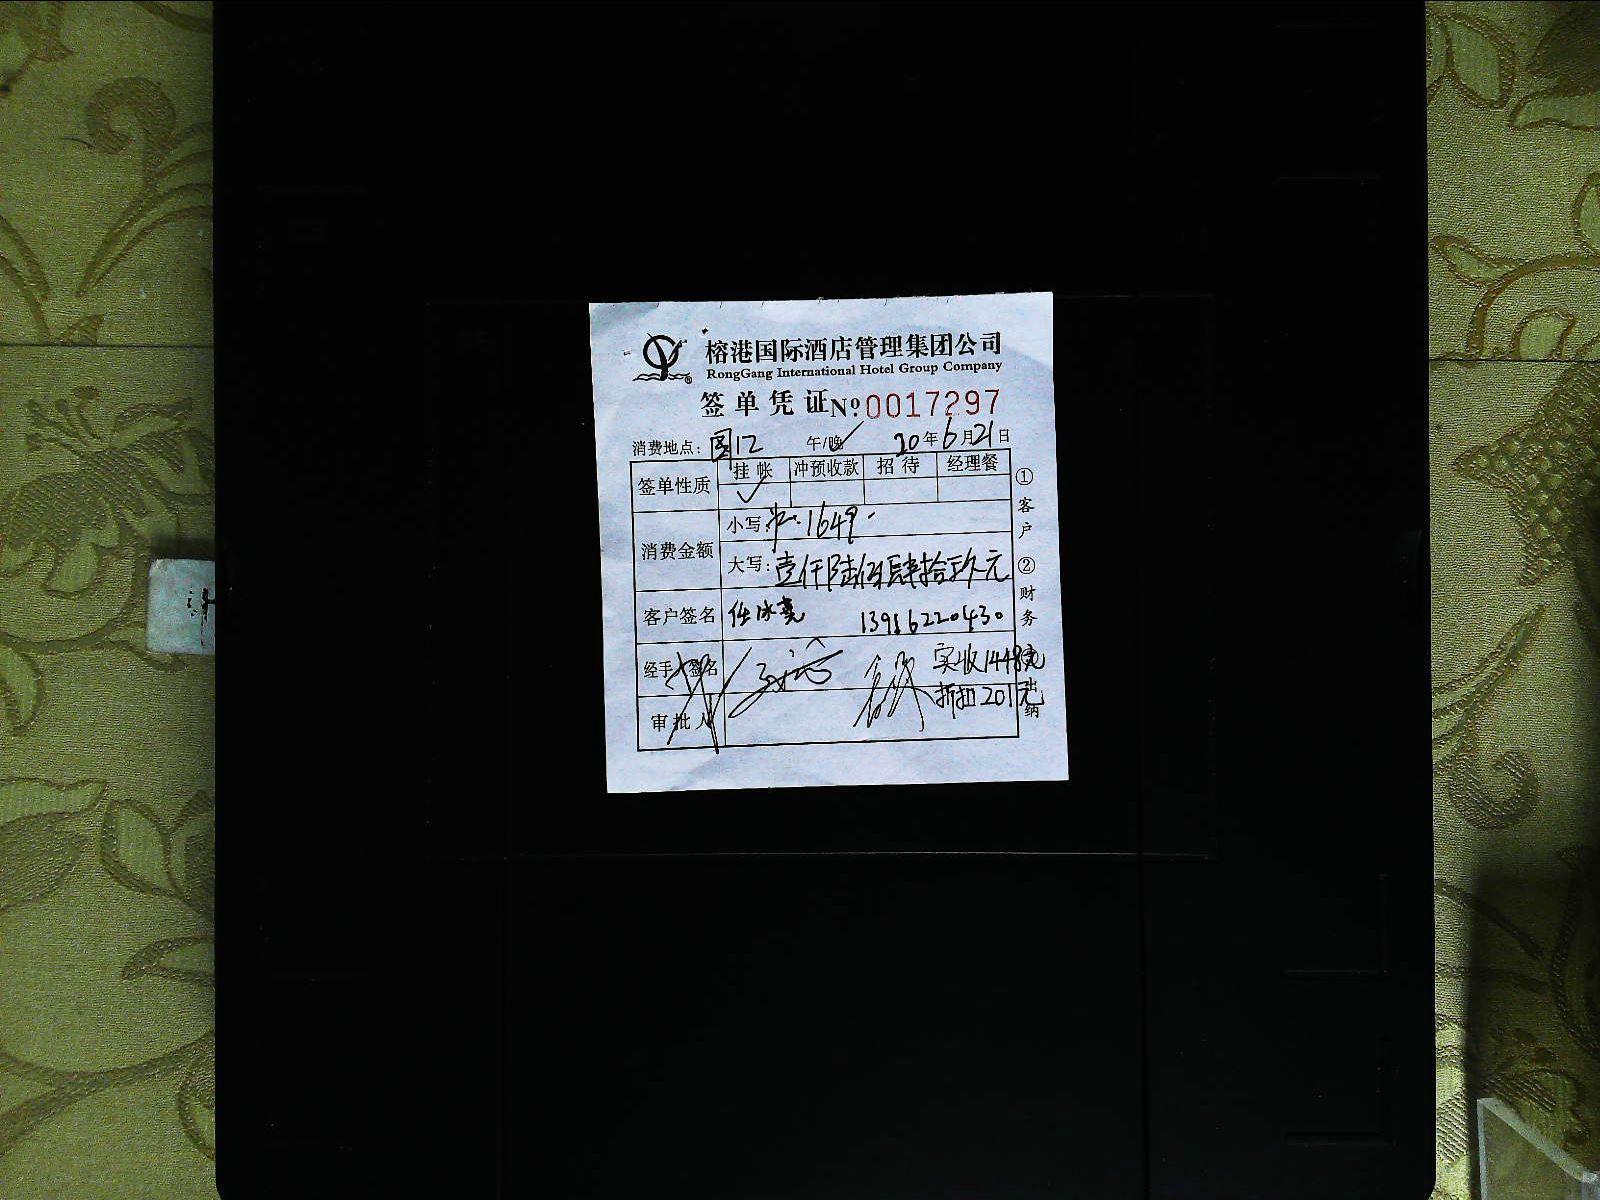 榕港国际酒店管理集团公司
RongGang International Hotel Group Company
签单凭证 № 0017297
消费地点: 午/晚 20年6月21日
签单性质 挂帐 冲预收款 招待 经理餐
消费金额 小写: 1649.-
大写: 壹仟陆佰肆拾玖元
客户签名 任冰尧 13916220430
经手人签名 实收1448元
审批人 折扣201元
①客户 ②财务 出纳